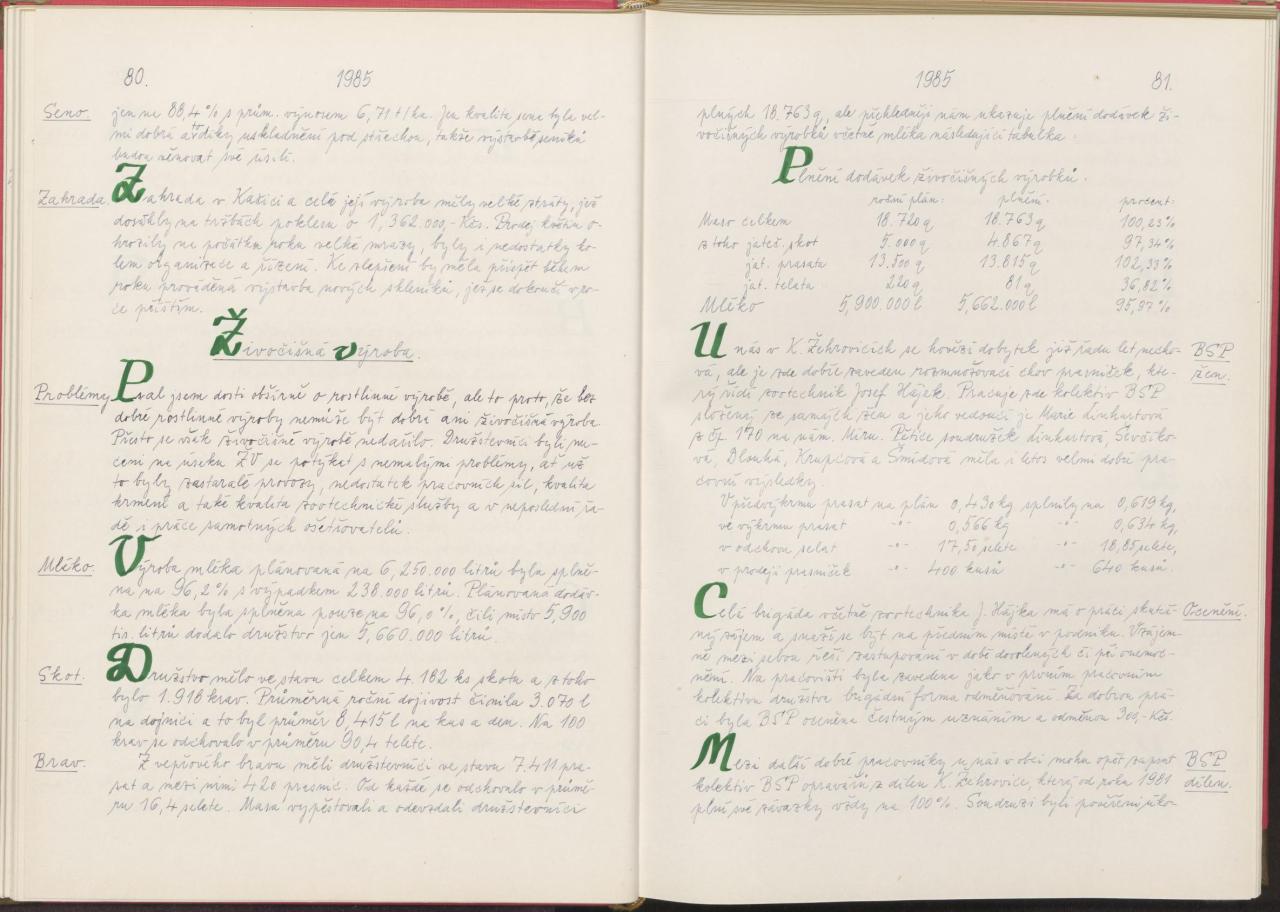 80.
1985
Seno.
jen na 88,4% s prům. výnosem 6,71 t/ha. Jen kvalita sena byla vel-
mi dobrá a to díky uskladnění pod střechou, takže výstavbě seníků
budou věnovat své úsilí.
Zahrada.
Zahrada v Kačici a celá její výroba měly velké ztráty, jež
dosáhly na tržbách poklesu o 1,362.000,-Kčs. Prodej květin o-
hrozily na počátku roku velké mrazy, byly i nedostatky ko-
lem organizace a řízení. Ke zlepšení by měla přispět během
roku prováděná výstavba nových skleníků, jež se dokončí v ro-
ce příštím.
Živočišná výroba.
Problémy
Psal jsem dosti obšírně o rostlinné výrobě, ale to proto, že bez
dobré rostlinné výroby nemůže být dobrá ani živočišná výroba.
Přesto se však živočišné výrobě nedařilo. Družstevníci byli nu-
ceni na úseku ŽV se potýkat s nemalými problémy, ať už
to byly zastaralé provozy, nedostatek pracovních sil, kvalita
krmení a také kvalita zootechnické služby a v neposlední řa-
dě i práce samotných ošetřovatelů.
Mléko.
Výroba mléka plánovaná na 6,250.000 litrů byla splně-
na na 96,2% s výpadkem 238.000 litrů. Plánovaná dodáv-
ka mléka byla splněna pouze na 96,0%, čili místo 5,900
tis. litrů dodalo družstvo jen 5,660.000 litrů.
Skot.
Družstvo mělo ve stavu celkem 4.182 ks skotu a z toho
bylo 1.918 krav. Průměrná roční dojivost činila 3.070 l
na dojnici a to byl průměr 8,415 l na kus a den. Na 100
krav se odchovalo v průměru 90,4 telete.
Brav.
Z vepřového bravu měli družstevníci ve stavu 7.411 pra-
sat a mezi nimi 420 prasnic. Od každé se odchovalo v průmě-
ru 16,4 selete. Masa vypěstovali a odevzdali družstevníci
1985
81.
plných 18.763 q, ale přehledněji nám ukazuje plnění dodávek ži-
vočišných výrobků včetně mléka následující tabulka.
Plnění dodávek živočišných výrobků.
roční plán: plnění: procent:
Maso celkem 18.720 q 18.763 q 100,23%
z toho jateč. skot 5.000 q 4.867 q 97,34%
jat. prasata 13.500 q 13.815 q 102,33%
jat. telata 220 q 81 q 36,82%
Mléko 5,900.000 l 5,662.000 l 95,97%
U nás v K. Žehrovicích se hovězí dobytek již řadu let necho-
vá, ale je zde dobře zaveden rozmnožovací chov prasniček, kte-
rý řídí zootechnik Josef Hájek. Pracuje zde kolektiv BSP
složený ze samých žen a jeho vedoucí je Marie Linhartová
z čp. 170 na nám. Míru. Pětice soudružek Linhartová, Ševčíko-
vá, Dlouhá, Krupičová a Šmídová měla i letos velmi dobré pra-
covní výsledky.
BSP
žen.
V předvýkrmu prasat na plán 0,430 kg splnily na 0,619 kg,
ve výkrmu prasat -"- 0,566 kg -"- 0,634 kg,
v odchovu selat -"- 17,50 selete -"- 18,85 selete,
v prodeji prasniček -"- 400 kusů -"- 640 kusů.
Celá brigáda včetně zootechnika J. Hájka má o práci skuteč-
ný zájem a snaží se být na předním místě v podniku. Vzájem-
ně mezi sebou řeší zastupování v době dovolených či při onemoc-
nění. Na pracovišti byla zavedena jako v prvním pracovním
kolektivu družstva brigádní forma odměňování. Za dobrou prá-
ci byla BSP oceněna čestným uznáním a odměnou 300,-Kčs.
Ocenění.
Mezi další dobré pracovníky u nás v obci mohu opět zapsat
kolektiv BSP opravářů z dílen K. Žehrovice, který od roku 1981
plní své závazky vždy na 100%. Soudruzi byli pověřeni úko-
BSP
dílen.